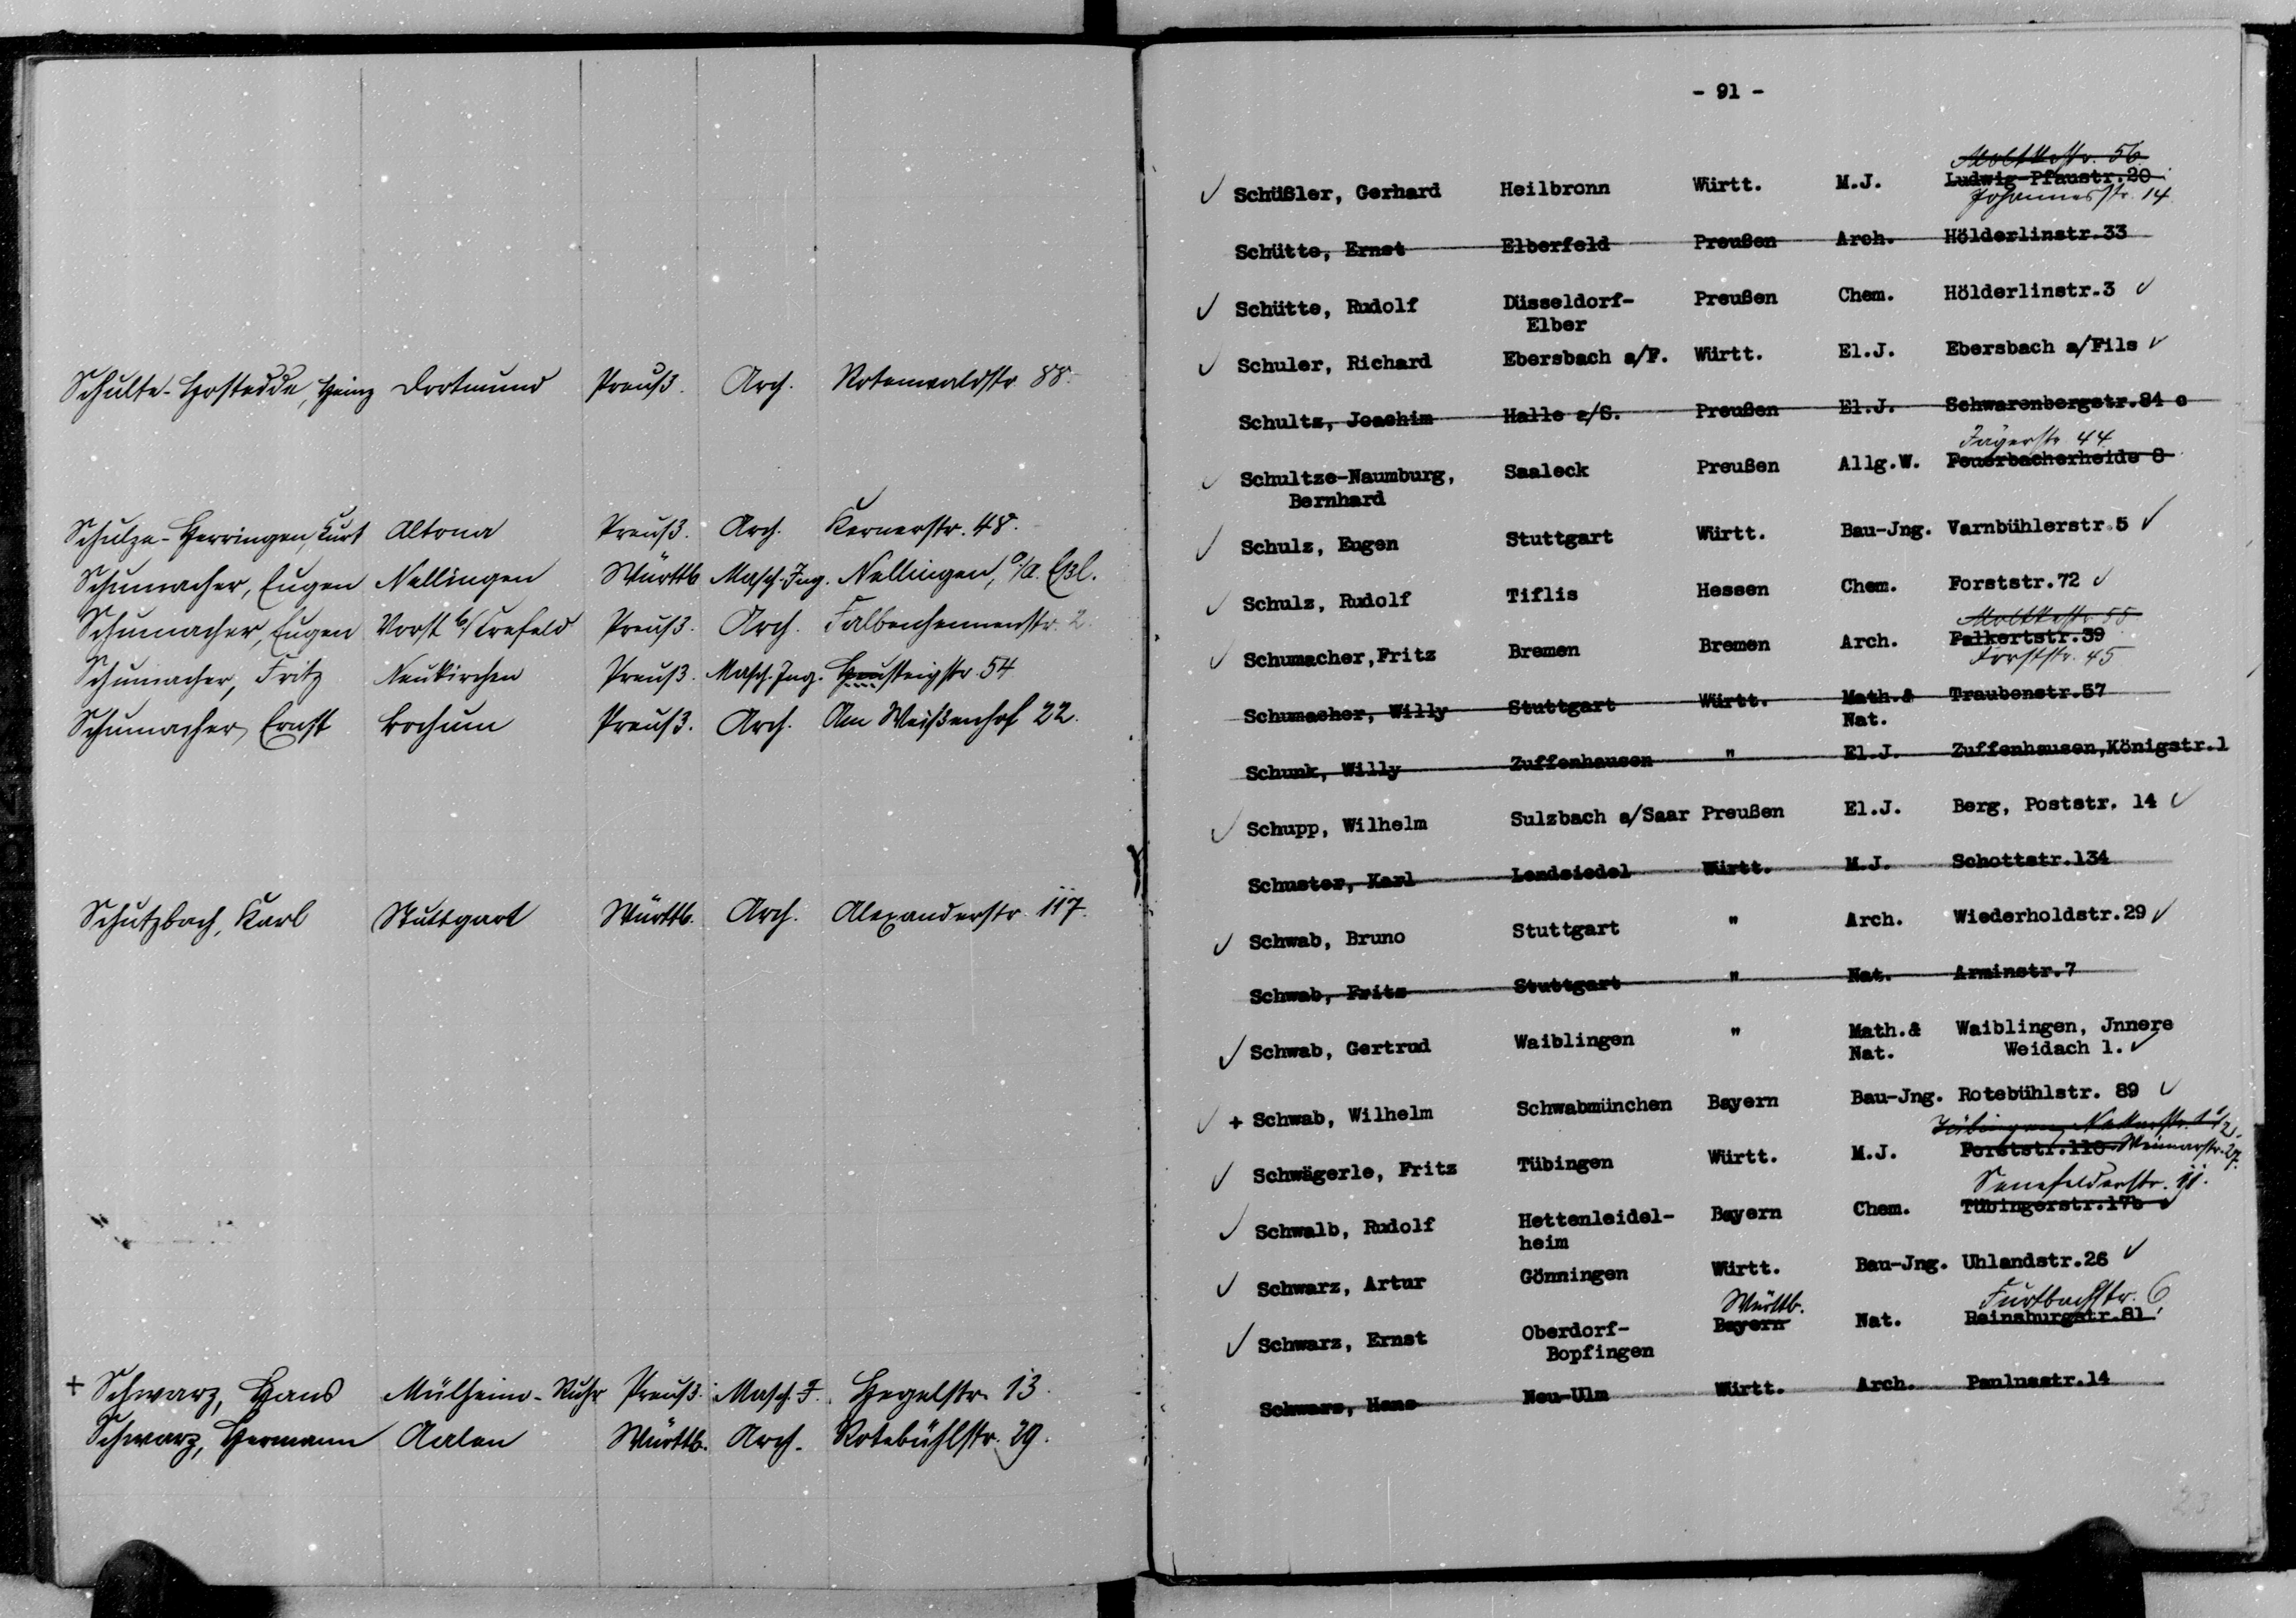 Schulte-Hostedde, Heinz Dortmund Preuß. Arch. Rotenwaldstr. 88.
Schulze-Herringen, Kurt Altona Preuß. Arch. Kernerstr. 48.
Schumacher, Eugen Nellingen Württb. Masch.-Ing. Nellingen, O/A. Eßl.
Schumacher, Eugen Vorst b/ Crefeld Preuß. Arch. Falbenhennenstr. 2.
Schumacher, Fritz Neukirchen Preuß. Masch.-Ing. Heusteigstr. 54
Schumacher, Ernst Bochum Preuß. Arch. Am Weißenhof 22.
Schutzbach, Karl Stuttgart Württb. Arch. Alexanderstr. 117.
+ Schwarz, Hans Mülheim-Ruhr Preuß. Masch.-I. Hegelstr. 13.
Schwarz, Hermann Aalen Württb. Arch. Rotebühlstr. 29.
- 91 -
Moltkestr. 56.
✓ Schüßler, Gerhard Heilbronn Württ. M.J. Ludwig-Pfaustr.20
Johannesstr. 14.
Schütte, Ernst Elberfeld Preußen Arch. Hölderlinstr.33
✓ Schütte, Rudolf Düsseldorf- Preußen Chem. Hölderlinstr.3 ✓
Elber
✓ Schuler, Richard Ebersbach a/F. Württ. El.J. Ebersbach a/Fils ✓
Schultz, Joachim Halle a/S. Preußen El.J. Schwarenbergstr.84 c
Jägerstr. 44
✓ Schultze-Naumburg, Saaleck Preußen Allg.W. Feuerbacherheide 8
Bernhard
✓ Schulz, Eugen Stuttgart Württ. Bau-Jng. Varnbühlerstr.5 ✓
✓ Schulz, Rudolf Tiflis Hessen Chem. Forststr.72 ✓
Moltkestr. 55
✓ Schumacher,Fritz Bremen Bremen Arch. Falkertstr.39
Forststr. 45
Schumacher, Willy Stuttgart Württ. Math.& Traubenstr.57
Nat.
Schunk, Willy Zuffenhausen " El.J. Zuffenhausen,Königstr.1
✓ Schupp, Wilhelm Sulzbach a/Saar Preußen El.J. Berg, Poststr. 14 ✓
Schuster, Karl Lendsiedel Württ. M.J. Schottstr.134
✓ Schwab, Bruno Stuttgart " Arch. Wiederholdstr.29 ✓
Schwab, Fritz Stuttgart " Nat. Arminstr.7
✓ Schwab, Gertrud Waiblingen " Math.& Waiblingen, Jnnere
Nat. Weidach 1. ✓
✓ + Schwab, Wilhelm Schwabmünchen Bayern Bau-Jng. Rotebühlstr. 89 ✓
Tübingen,
✓ Schwägerle, Fritz Tübingen Württ. M.J. Forststr.118 Weimarstr. 27.
Senefelderstr. 11.
✓ Schwalb, Rudolf Hettenleidel- Bayern Chem. Tübingerstr.17b
heim
✓ Schwarz, Artur Gönningen Württ. Bau-Jng. Uhlandstr.26 ✓
Württb. Furtbachstr. 6.
✓ Schwarz, Ernst Oberdorf- Bayern Nat. Reinsburgstr.81
Bopfingen
Schwarz, Hans Neu-Ulm Württ. Arch. Paulusstr.14
23